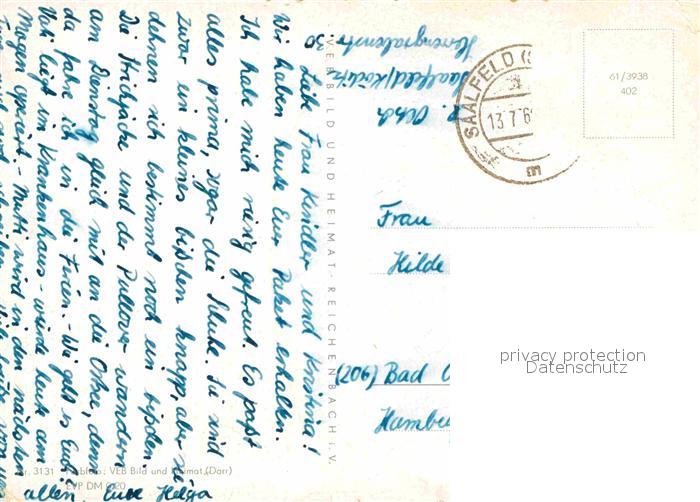 Liebe Frau Kindler und Kristina!
Wir haben heute Euer Paket erhalten.
Ich habe mich riesig gefreut. Es paßt
alles prima, sogar die Schuhe. Sie sind
zwar ein kleines bißchen knapp, aber sie
dehnen sich bestimmt noch ein bißchen.
Die Strickjacke und der Pullover wandern
am Dienstag gleich mit an die Ostsee, denn
da fahre ich in die Ferien. - Wie geht es Euch?
Vati liegt im Krankenhaus - wurde heute am
Magen operiert - Mutti wird in den nächsten
allen. Eure Helga
30
Saalfeld/Köditz
VEB BILD UND HEIMAT REICHENBACH i. V.
SAALFELD (S
13.7.6
61/3938
402
Frau
Hilde
(20b) Bad
Hambu
privacy protection
Datenschutz
Nr. 3131 VEB Bild und Heimat (Darr)
EVP DM 0.20